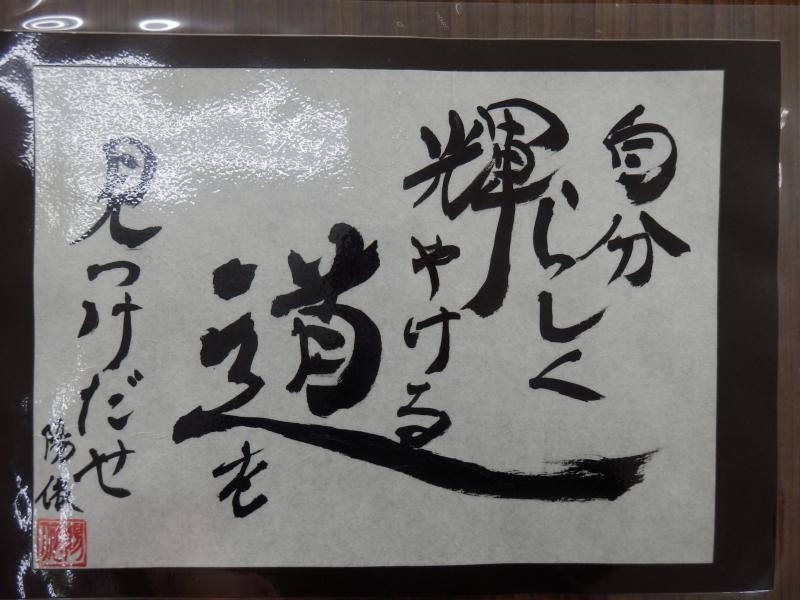 自分らしく
輝やける
道を
見つけだせ
陽俊